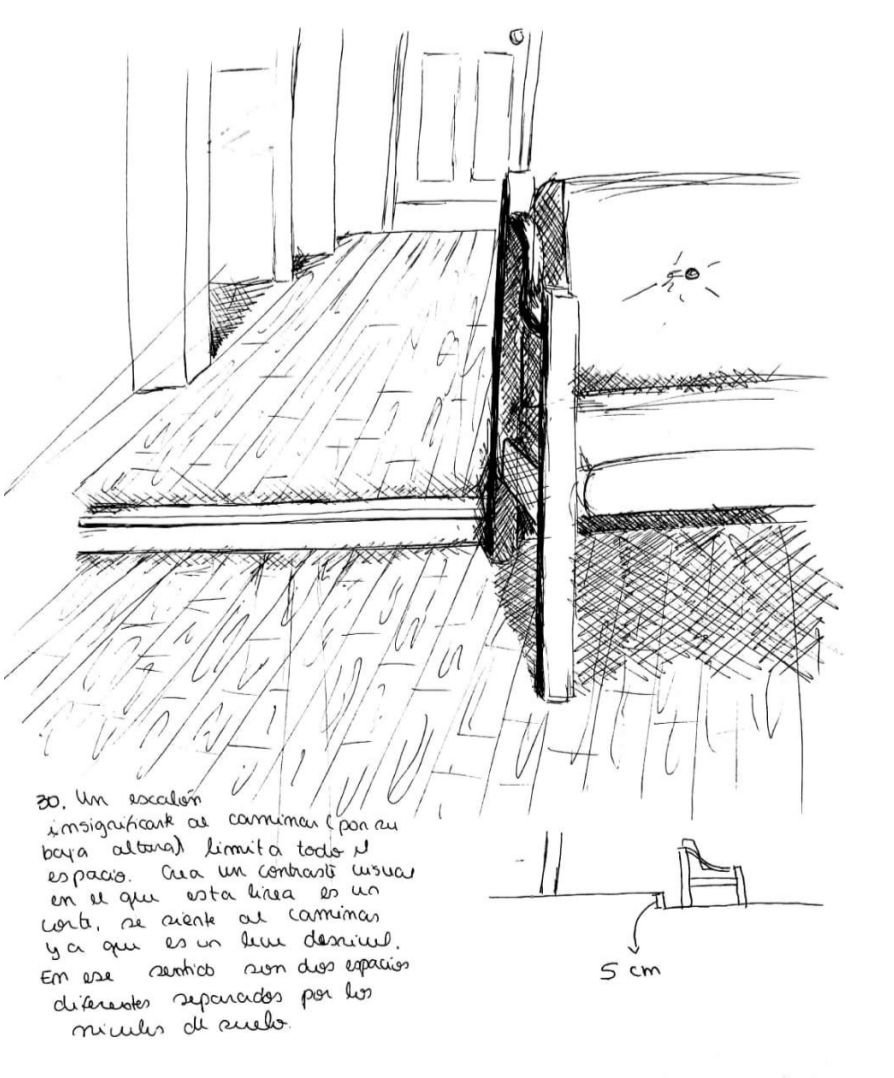 30. Un escalón
insignificante al caminar (por su
baja altura) limita todo el
espacio. Crea un contraste visual
en el que esta línea es un
corte, se siente al caminar
ya que es un leve desnivel.
En ese sentido son dos espacios
diferentes separados por los
niveles de suelo.
5 cm